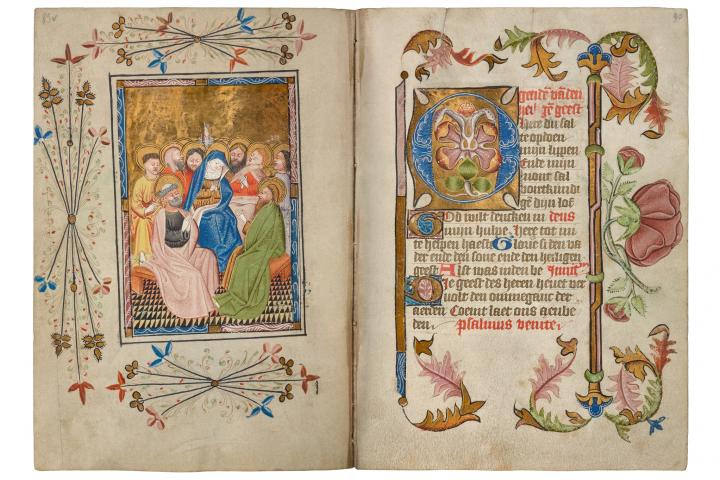 89v
90
geīdē vāden
hei gē geest
here du sal
te opdoen
mijn lippen
Ende mijn
mont sal
voirtkundi
gē dijn lof
God wilt dencken in deus
mijn hulpe here tot mi
te helpen haeste Glorie si den va
der ende den sone ende den heiligen
geest Als twas inden be
Die geest des heren hevet ver
vult den ommeganc der
aerden Coemt laet ons aenbe
den psalmus venite